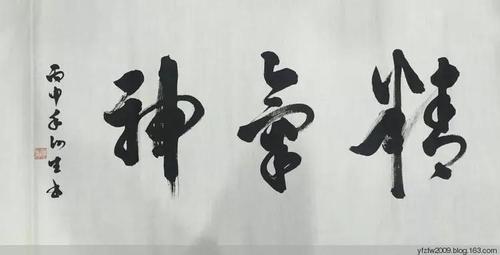 精氣神
丙申年
yfzfw2009.blog.163.com